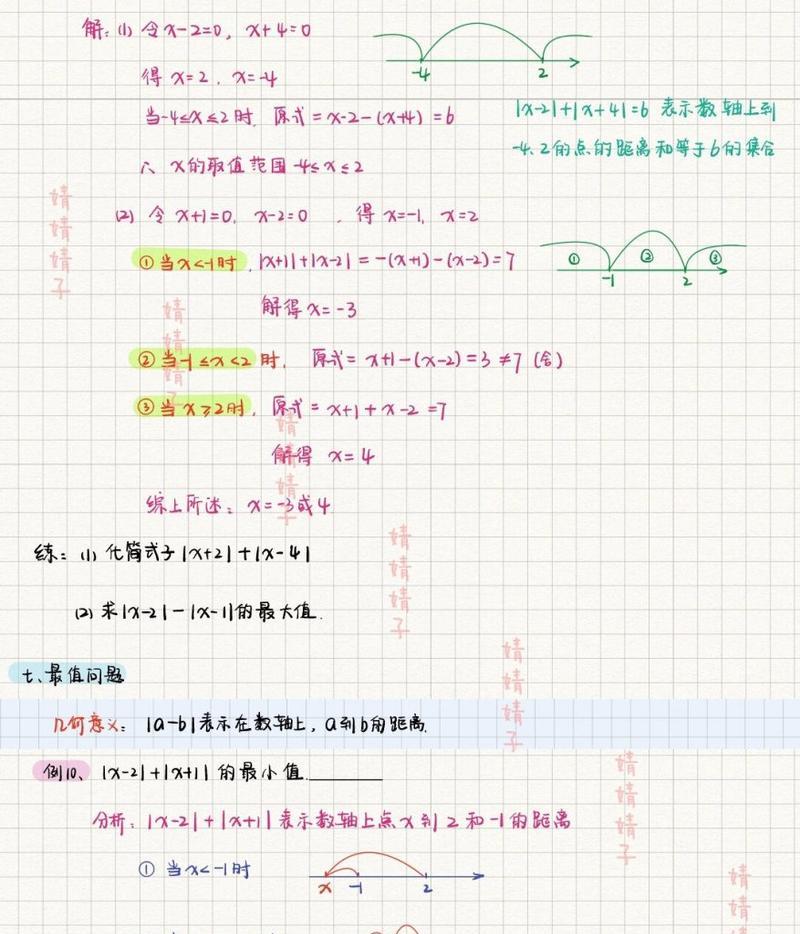 解:(1) 令x-2=0, x+4=0
得 x=2, x=-4
-4 2
当-4≤x≤2时, 原式=x-2-(x+4)=6
|x-2|+|x+4|=6 表示数轴上到
-4、2的点的距离和等于6的集合
∴ x的取值范围-4≤x≤2
(2) 令 x+1=0, x-2=0 , 得 x=-1, x=2
①当x<-1时, |x+1|+|x-2|=-(x+1)-(x-2)=7
① ② ③
-1 2
解得x=-3
②当-1≤x<2时, 原式=x+1-(x-2)=3≠7 (舍)
③当x≥2时, 原式=x+1+x-2=7
解得 x=4
综上所述: x=-3或4
练: (1) 化简式子|x+2|+|x-4|
(2) 求|x-2|-|x-1|的最大值.
七、最值问题
几何意义: |a-b|表示在数轴上, a到b的距离.
例10、|x-2|+|x+1|的最小值.________
分析: |x-2|+|x+1|表示数轴上点x到2和-1的距离
① 当x<-1时
x -1 2
婧婧婧子
婧婧婧子
婧婧婧子
婧婧婧子
婧婧婧子
婧婧婧子
婧婧